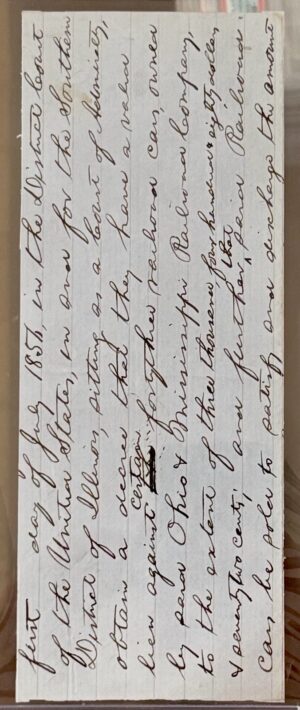 first day of July 1856, in the District Court
of the United States, in and for the Southern
District of Illinois, sitting as a Court of Admiralty,
obtain a decree that they have a valid
lien against certain forty three railroad cars, owned
by said Ohio & Mississippi Railroad Company,
to the extent of three thousand, four hundred & eighty dollars
& seventy two cents, and further that said Railroad
cars be sold to satisfy and discharge the amount